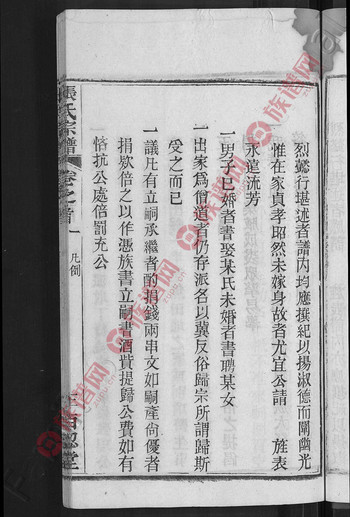 烈懿行堪述者譜内均應撰紀以揚淑德而闡幽光
惟在家貞孝昭然未嫁身故者尤宜公請 旌表
永遠流芳
一男子已婚者書娶某氏未婚者書聘某女
一出家爲僧道者仍存派名以冀反俗歸宗所謂歸斯
受之而已
一議凡有立嗣承繼者酌捐錢兩串文如嗣產尚優者
捐欵倍之以作憑族書立嗣書酒貲提歸公費如有
恪抗公處倍罰充公
張氏宗譜
卷之首
凡例
一
百忍堂
族谱网